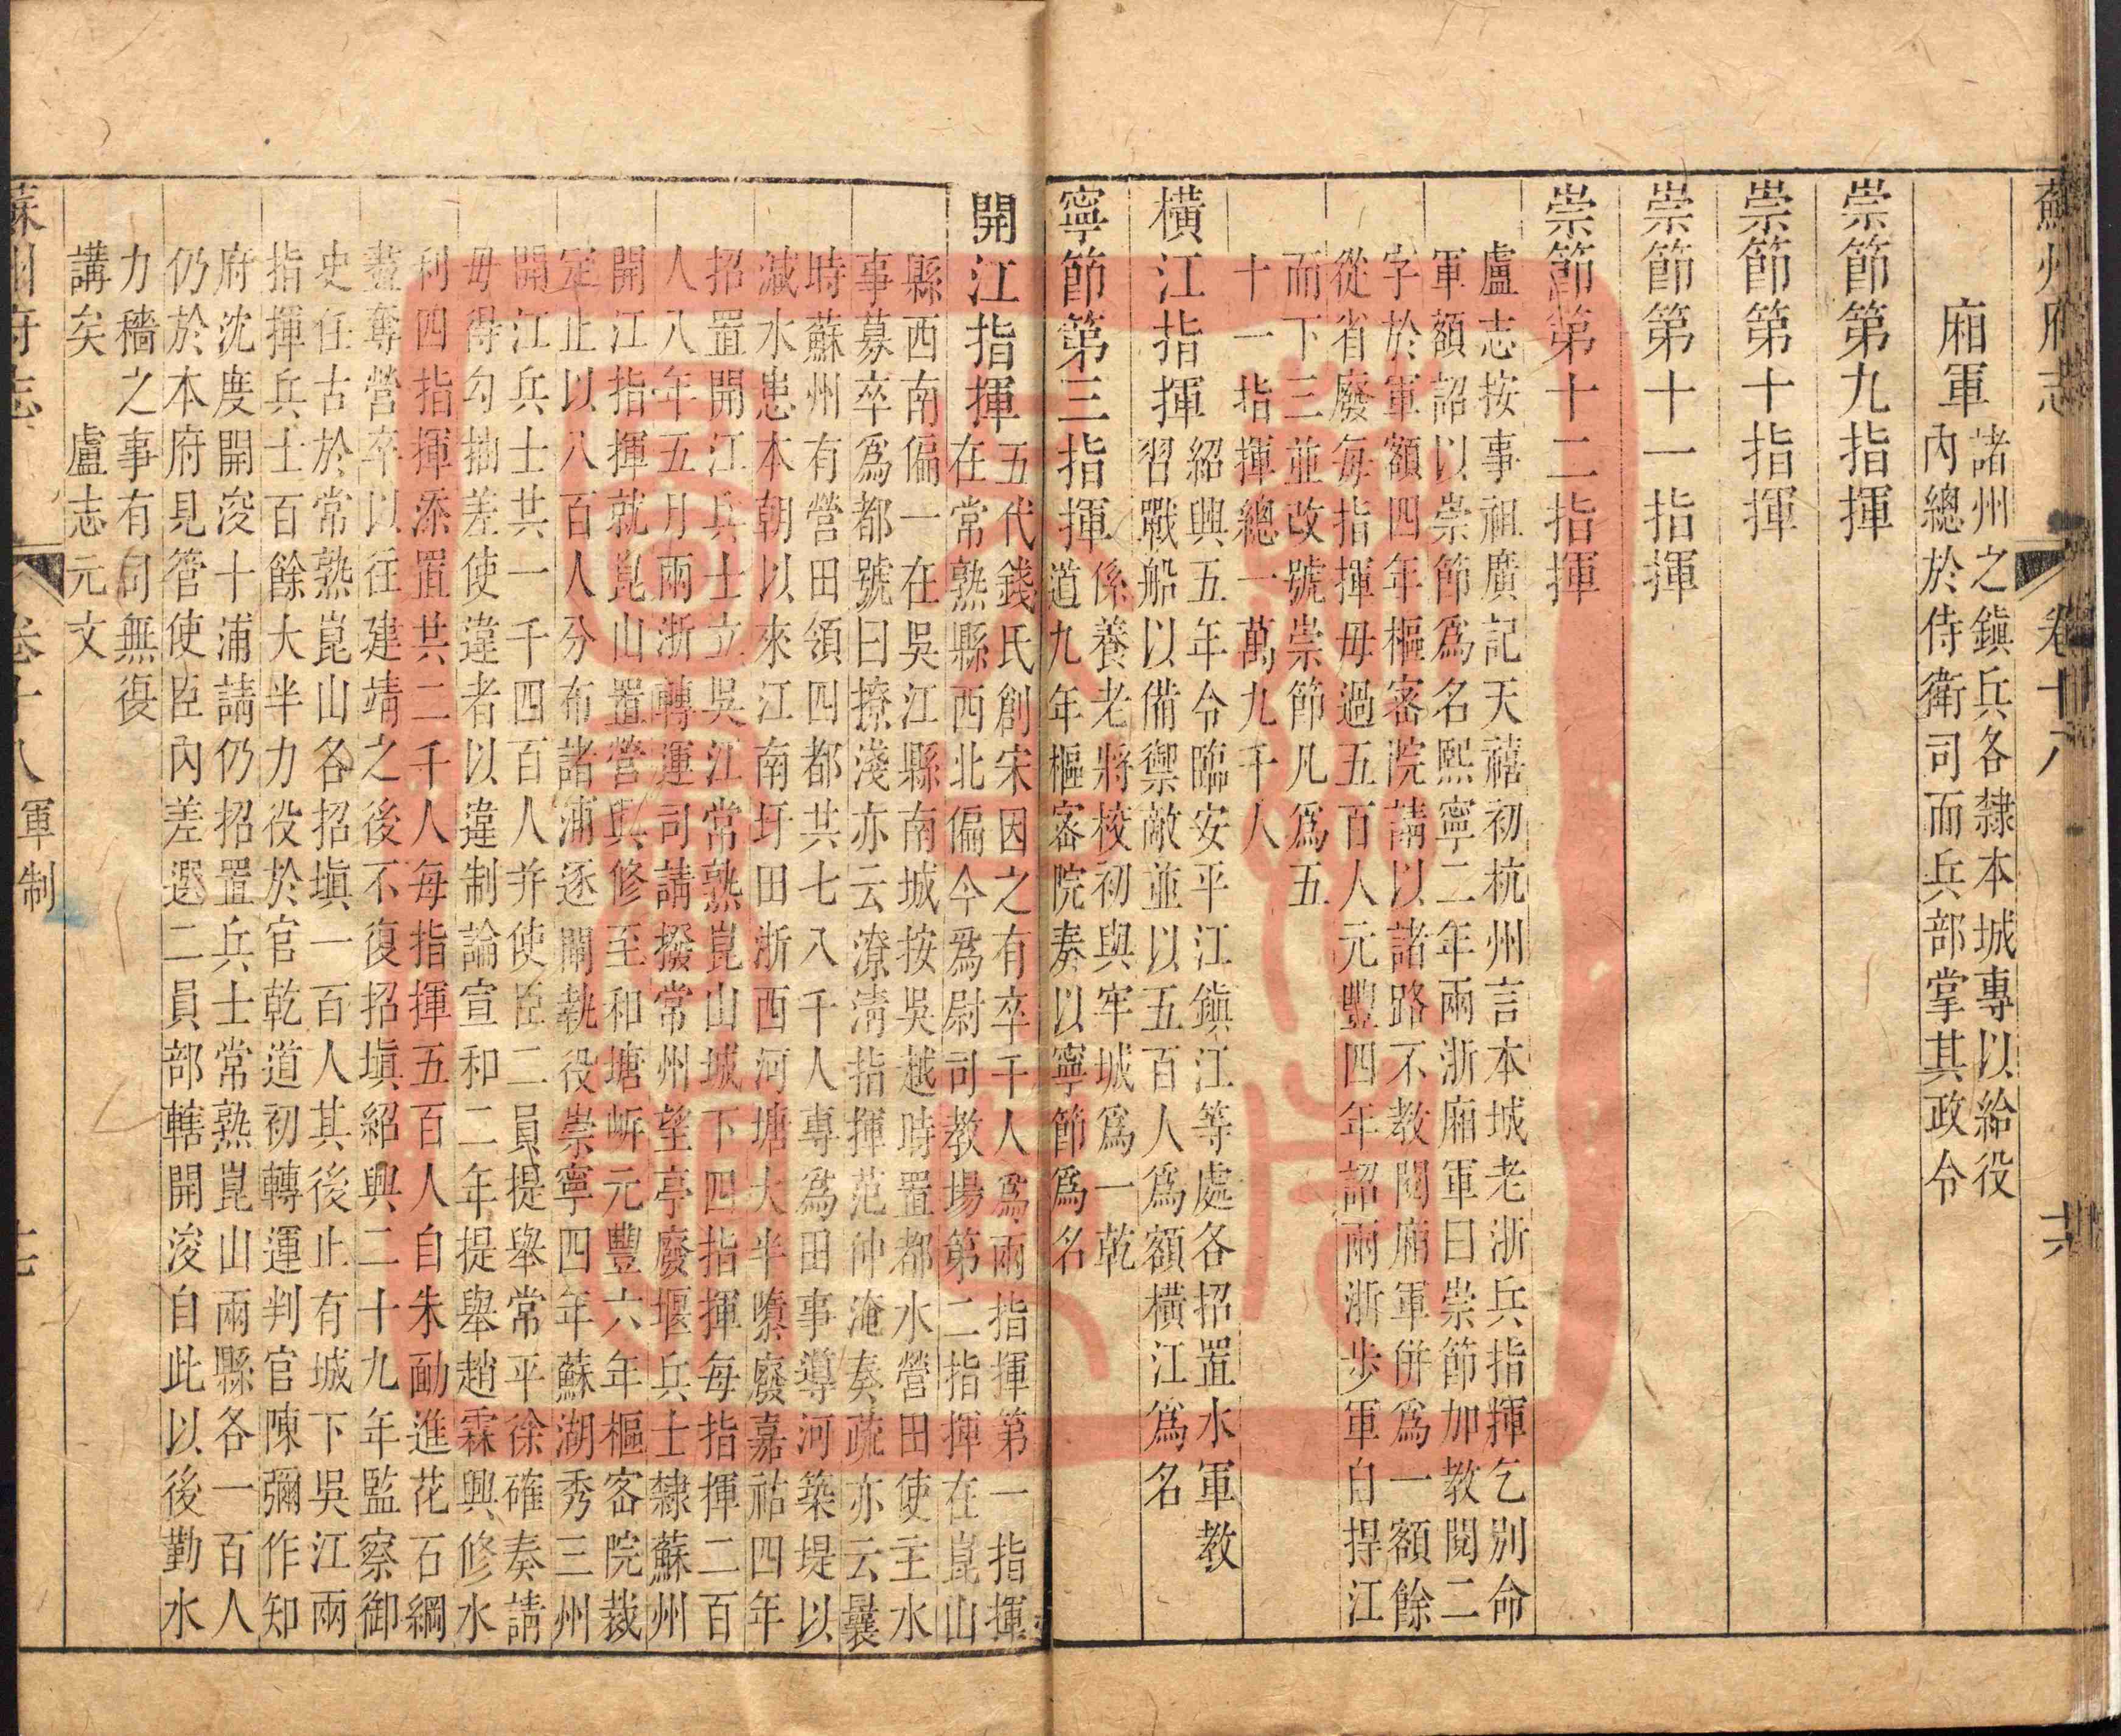 蘇州府志 卷十八 六
廂軍
諸州之鎮兵各隸本城專以給役
內總於侍衛司而兵部掌其政令
崇節第九指揮
崇節第十指揮
崇節第十一指揮
崇節第十二指揮
盧志按事祖廣記天禧初杭州言本城老浙兵指揮乞別命
軍額詔以崇節爲名熙寧二年兩浙廂軍曰崇節加教閱二
字於軍額四年樞密院請以諸路不教閱廂軍併爲一額餘
從省廢每指揮毋過五百人元豐四年詔兩浙步軍自捍江
而下三並改號崇節凡爲五
十一指揮總一萬九千人
橫江指揮
紹興五年令臨安平江鎮江等處各招置水軍教
習戰船以備禦敵並以五百人爲額橫江爲名
寧節第三指揮
係養老將校初與牢城爲一乾
道九年樞密院奏以寧節爲名
開江指揮
五代錢氏創宋因之有卒千人爲兩指揮第一指揮
在常熟縣西北偏今爲尉司教場第二指揮在崑山
縣西南偏一在吳江縣南城按吳越時置都水營田使主水
事募卒爲都號曰撩淺亦云潦淸指揮范仲淹奏疏亦云曩
時蘇州有營田領四都共七八千人專爲田事導河築堤以
減水患本朝以來江南圩田浙西河塘大半隳廢嘉祐四年
招置開江兵士立吳江常熟崑山城下四指揮每指揮二百
人八年五月兩浙轉運司請撥常州望亭廢堰兵士隸蘇州
開江指揮就崑山置營與修至和塘岍元豐六年樞密院裁
定止以八百人分布諸浦逐閘執役崇寧四年蘇湖秀三州
開江兵士共一千四百人并使臣二員提舉常平徐確奏請
毋得勾抽差使違者以違制論宣和二年提舉趙霖興修水
利四指揮添置共二千人每指揮五百人自朱勔進花石綱
盡奪營卒以往建靖之後不復招塡紹興二十九年監察御
史任古於常熟崑山各招塡一百人其後止有城下吳江兩
指揮兵士百餘大半力役於官乾道初轉運判官陳彌作知
府沈度開浚十浦請仍招置兵士常熟崑山兩縣各一百人
仍於本府見管使臣內差選二員部轄開浚自此以後勤水
力穡之事有司無復
講矣 盧志元文
蘇州府志 卷十八 軍制 七